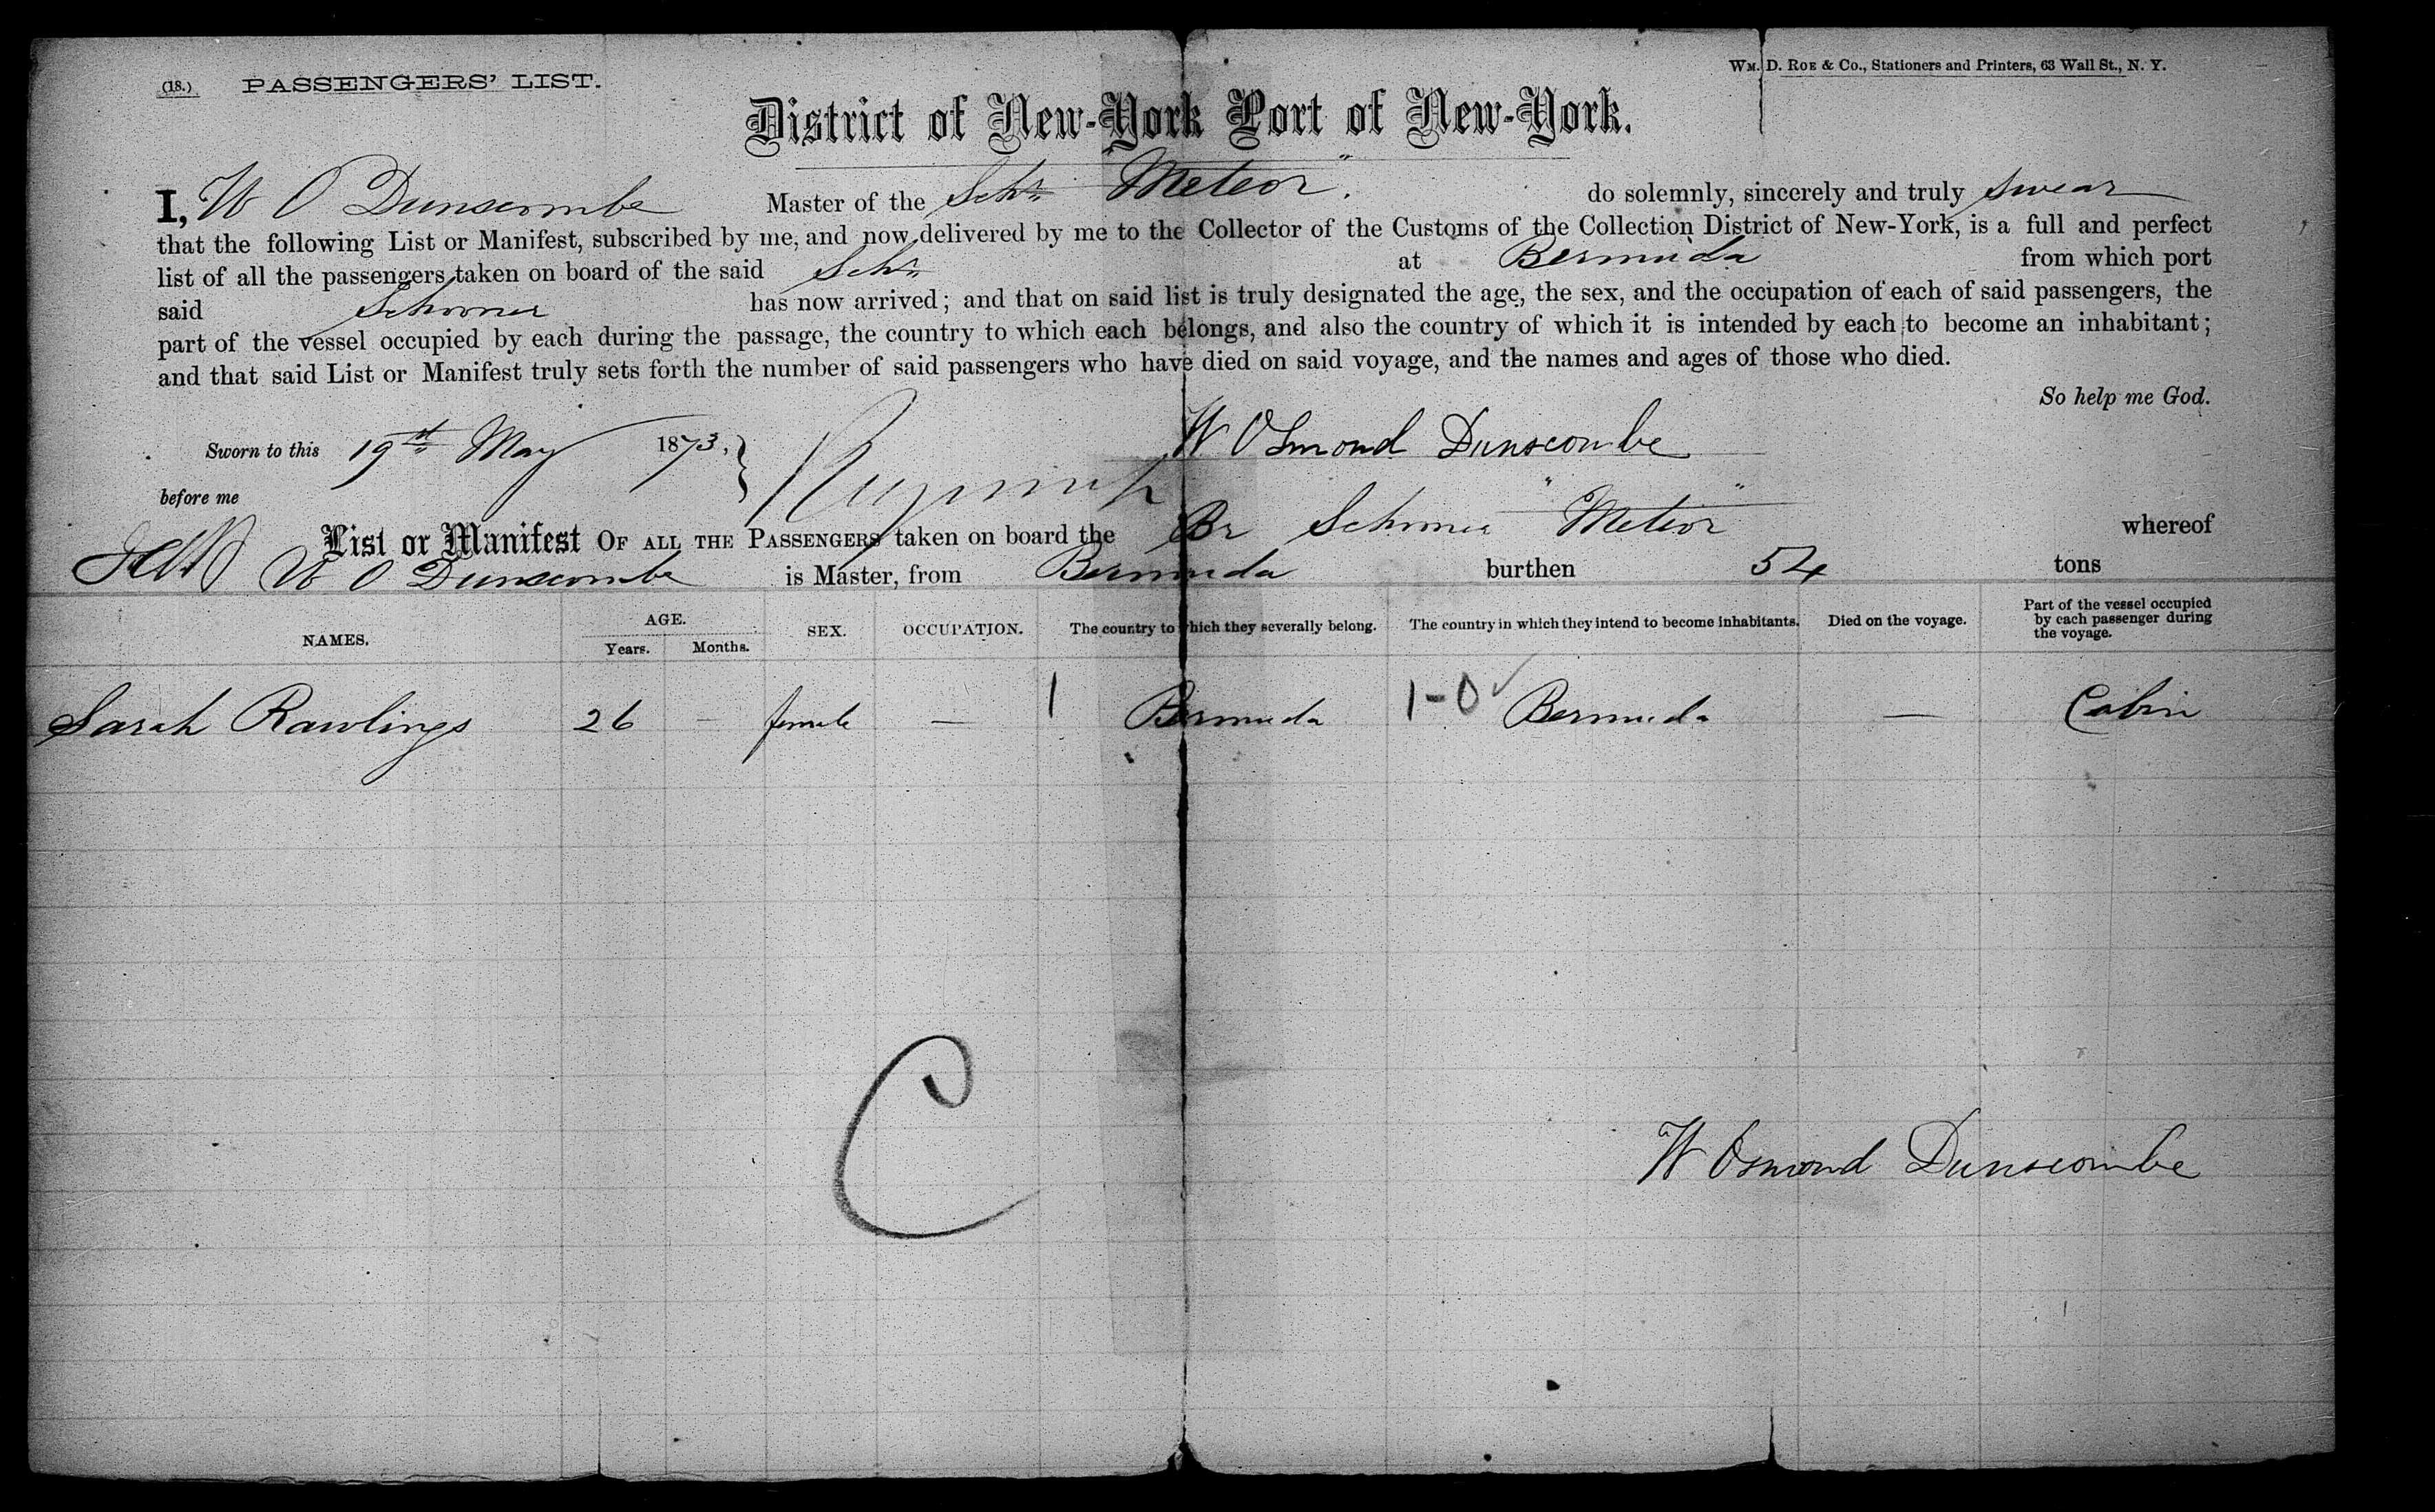 (18.) PASSENGERS' LIST.
WM. D. ROE & CO., Stationers and Printers, 63 Wall St., N. Y.
District of New-York Port of New-York.
I, W O Dunscombe Master of the Schr "Meteor". do solemnly, sincerely and truly swear
that the following List or Manifest, subscribed by me, and now delivered by me to the Collector of the Customs of the Collection District of New-York, is a full and perfect
list of all the passengers taken on board of the said Schr at Bermuda from which port
said Schooner has now arrived; and that on said list is truly designated the age, the sex, and the occupation of each of said passengers, the
part of the vessel occupied by each during the passage, the country to which each belongs, and also the country of which it is intended by each to become an inhabitant;
and that said List or Manifest truly sets forth the number of said passengers who have died on said voyage, and the names and ages of those who died.
So help me God.
Sworn to this 19th May 1873, W Osmond Dunscombe
before me
List or Manifest OF ALL THE PASSENGERS taken on board the Br Schooner "Meteor" whereof
W O Dunscombe is Master, from Bermuda burthen 54 tons
NAMES. AGE. Years. Months. SEX. OCCUPATION. The country to which they severally belong. The country in which they intend to become inhabitants. Died on the voyage. Part of the vessel occupied by each passenger during the voyage.
Sarah Rawlings 26 — female — 1 Bermuda 1-0 Bermuda — Cabin
C
W Osmond Dunscombe